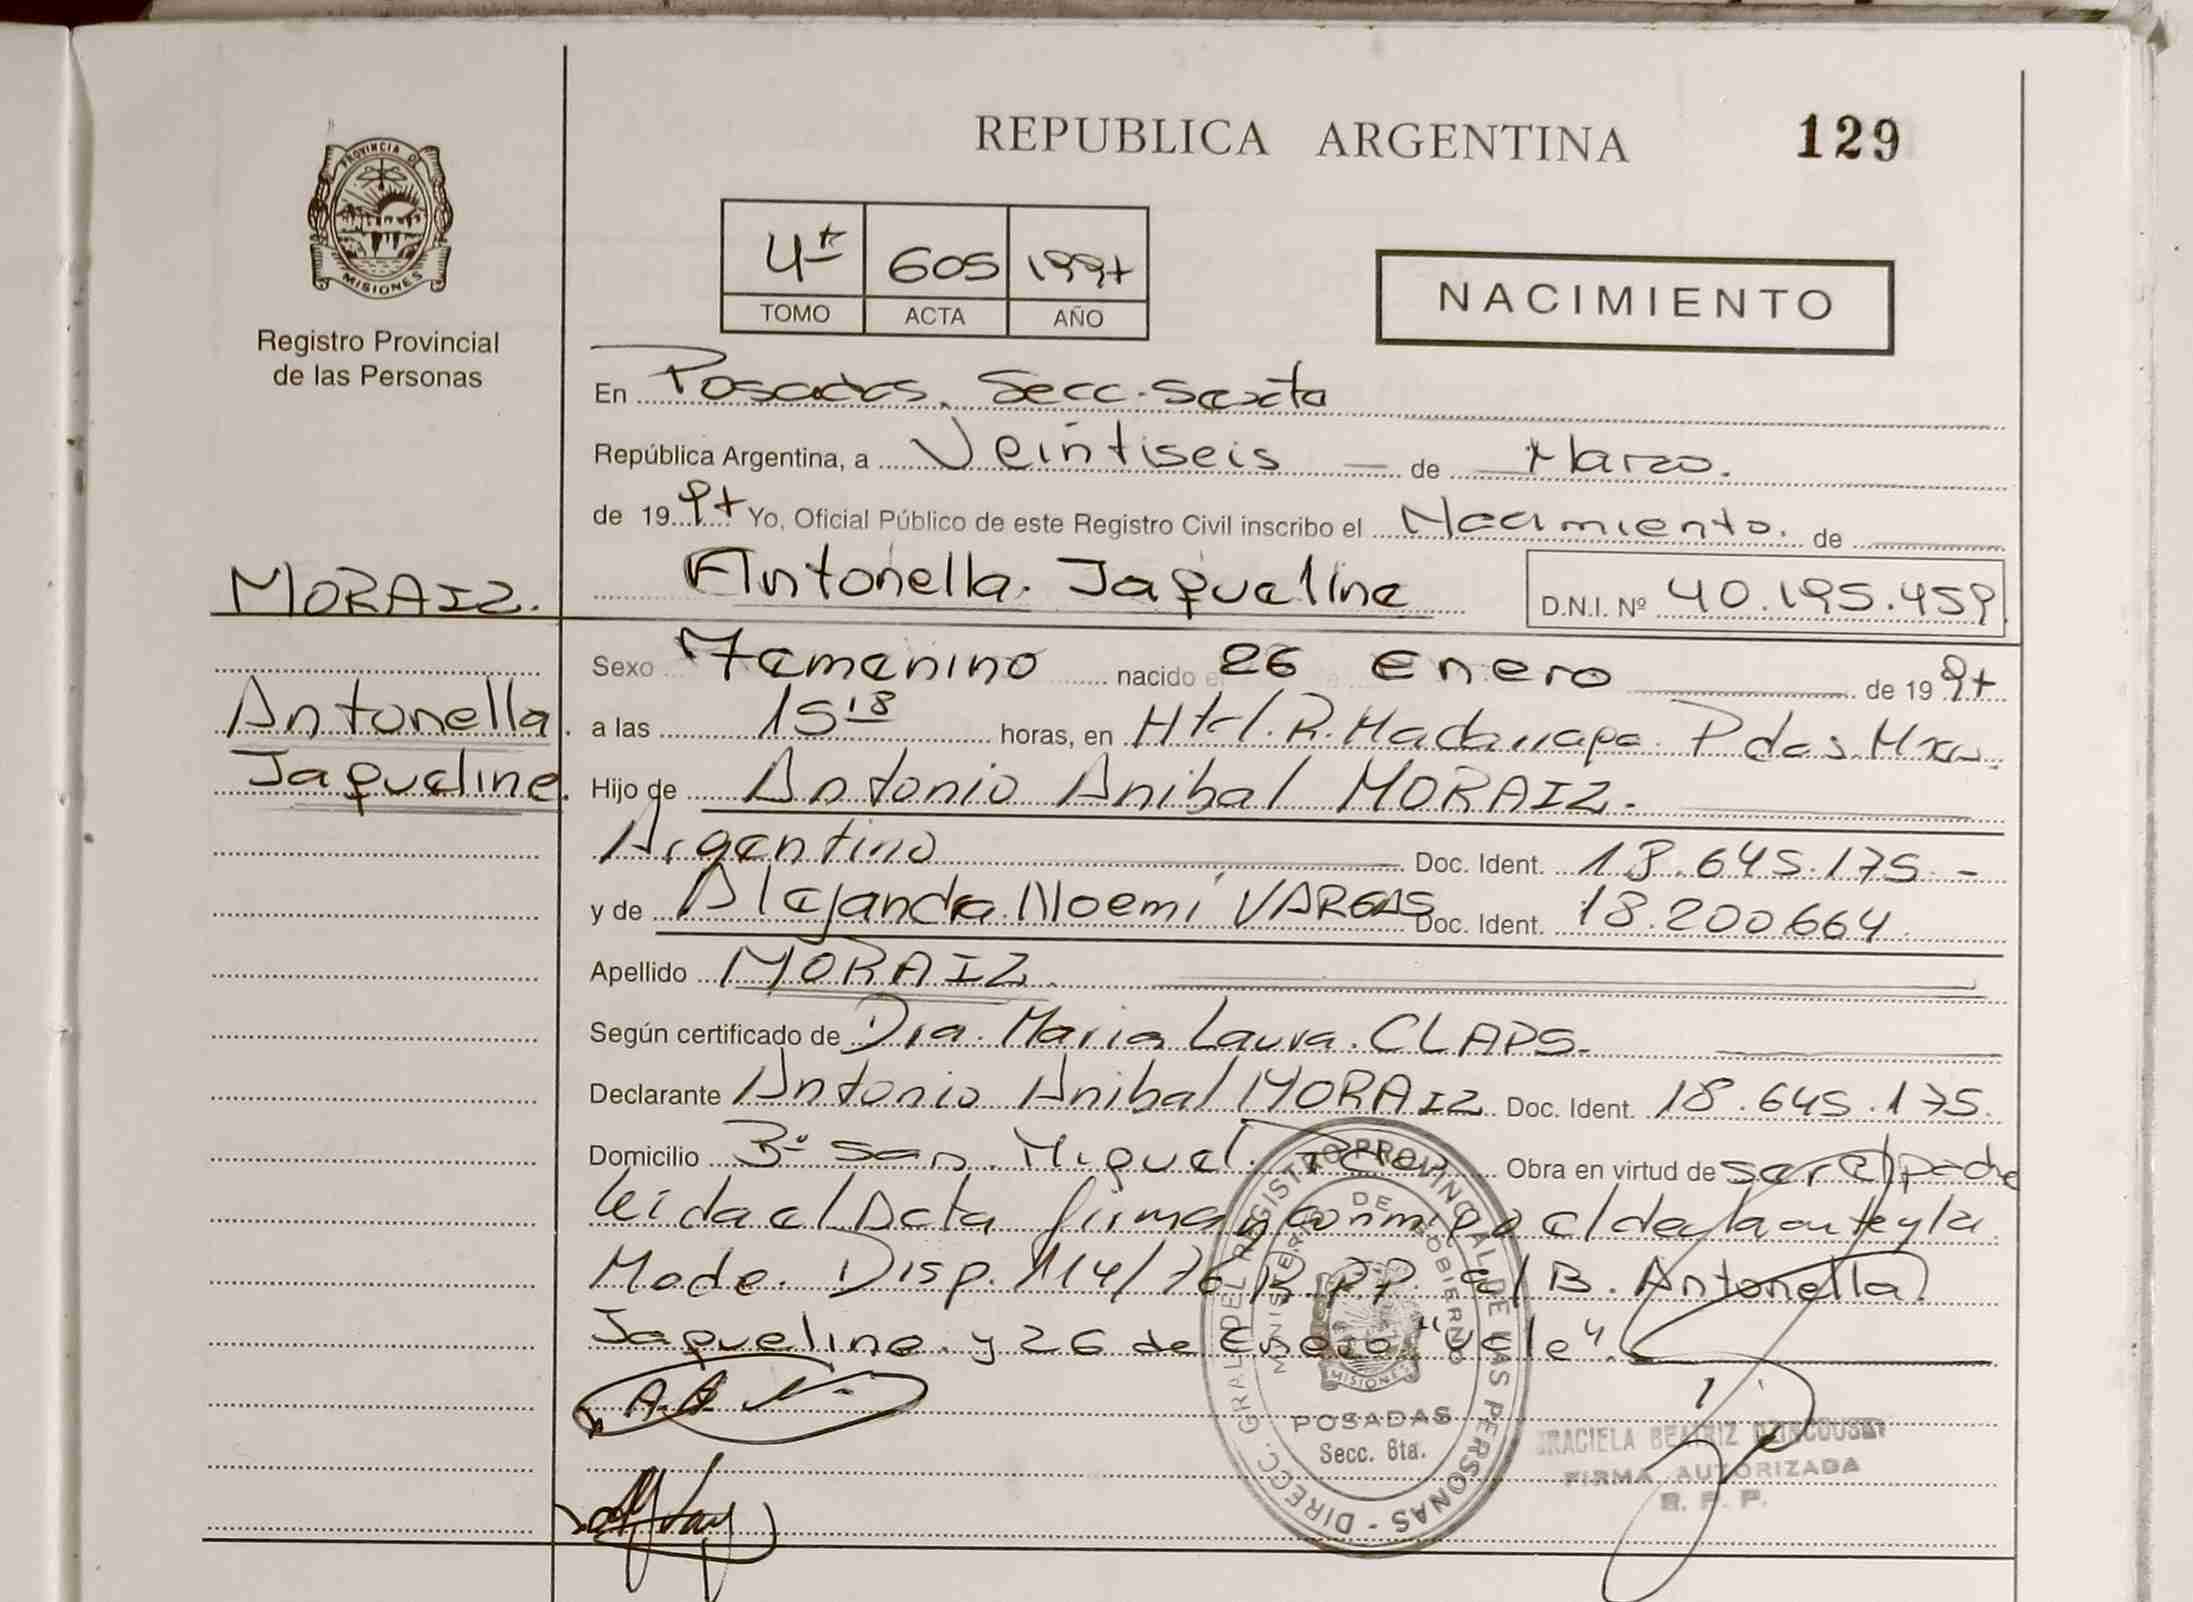 REPUBLICA ARGENTINA 129
PROVINCIA DE
MISIONES
Registro Provincial
de las Personas
4to 605 1997
TOMO ACTA AÑO
NACIMIENTO
En Posadas, Secc. Sexta
República Argentina, a Veintiseis de Marzo.
de 1997 Yo, Oficial Público de este Registro Civil inscribo el Nacimiento. de
MORAIZ. Antonella. Jaqueline D.N.I. Nº 40.195.459
Sexo Femenino nacido el 26 Enero de 1997
Antonella. a las 15 18 horas, en Htal. R. Madariaga. Pdas. Mnes.
Jaqueline. Hijo de Antonio Anibal MORAIZ.
Argentino Doc. Ident. 18.645.175.-
y de Alejandra Noemi VARGAS Doc. Ident. 18.200664
Apellido MORAIZ.
Según certificado de Dra. Maria Laura. CLAPS.
Declarante Antonio Anibal MORAIZ Doc. Ident. 18.645.175.
Domicilio Bº San Miguel. Pdas. Obra en virtud de ser el padre
leida el Acta firman conmigo el declarante y la
Made. Disp. 114/76 R.P.P. e/B. Antonella
Jaqueline y 26 de Enero "Vale".
A.A.M.
DIRECC. GRAL. DEL REGISTRO PROVINCIAL DE LAS PERSONAS
MINISTERIO DE GOBIERNO
MISIONES
POSADAS
Secc. 6ta.
GRACIELA BEATRIZ
FIRMA AUTORIZADA
R. P. P.